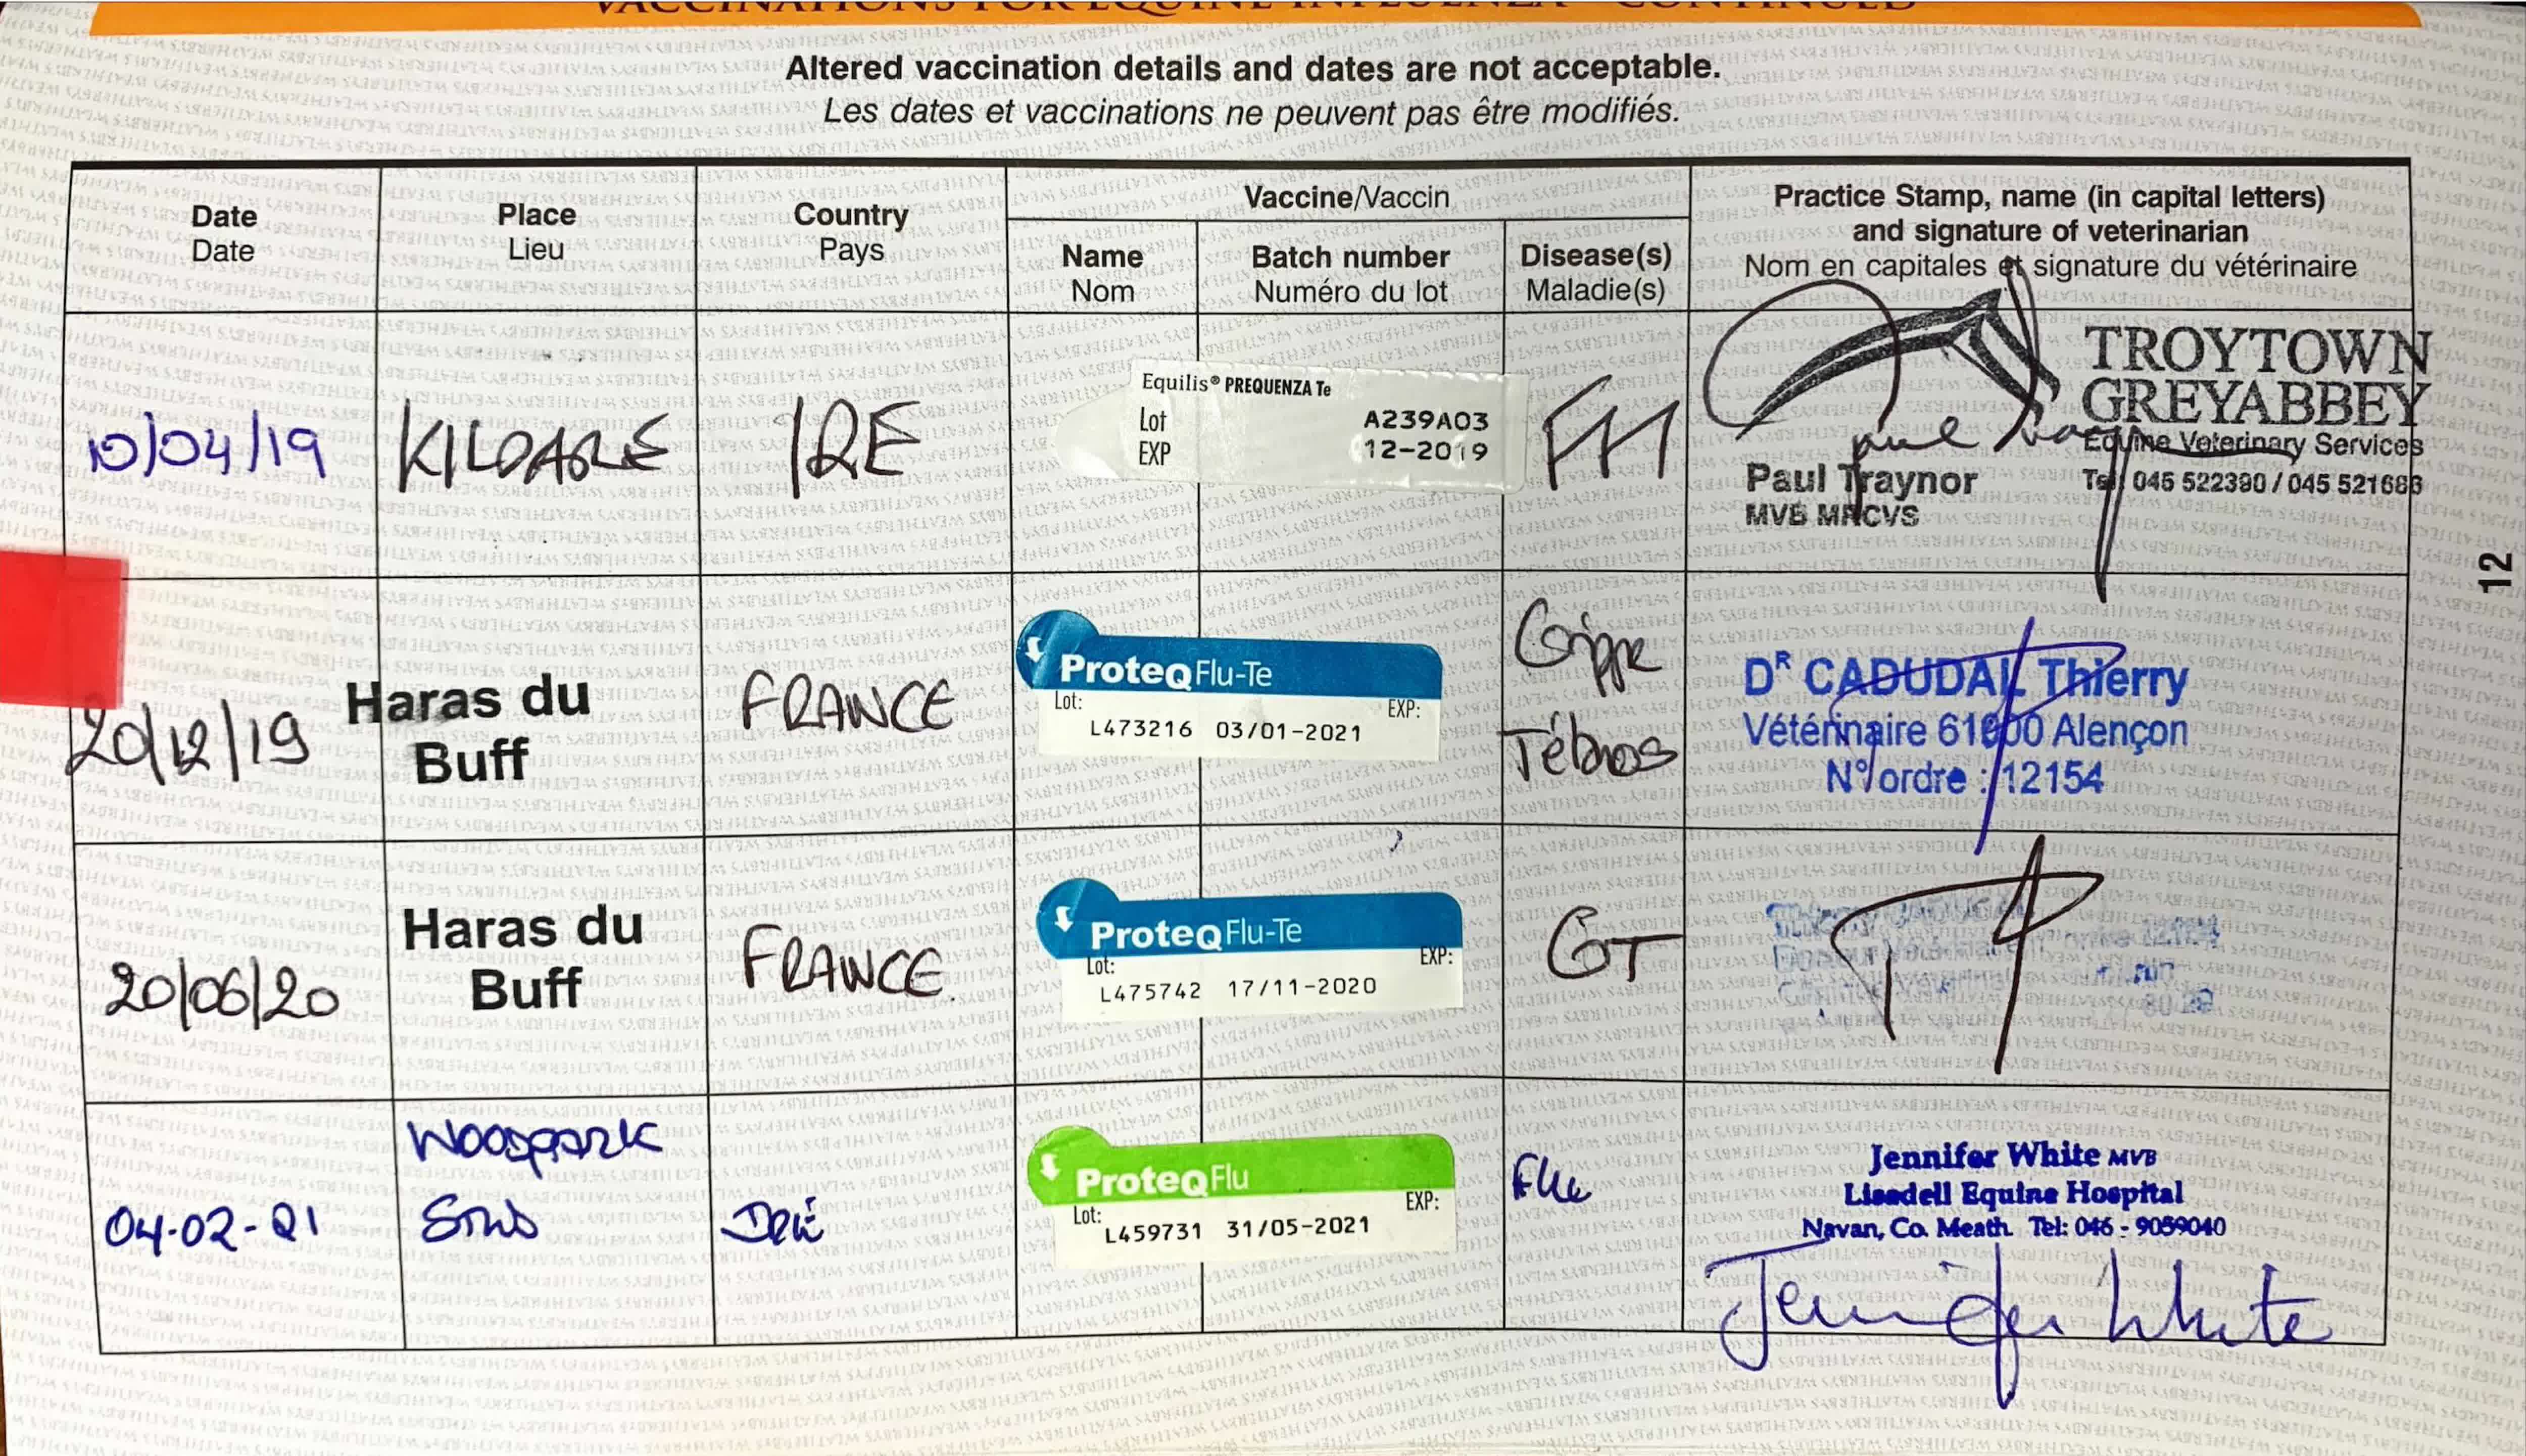 VACCINATIONS FOR EQUINE INFLUENZA - CONTINUED
Altered vaccination details and dates are not acceptable.
Les dates et vaccinations ne peuvent pas être modifiés.
Date
Date
Place
Lieu
Country
Pays
Vaccine/Vaccin
Name
Nom
Batch number
Numéro du lot
Disease(s)
Maladie(s)
Practice Stamp, name (in capital letters)
and signature of veterinarian
Nom en capitales et signature du vétérinaire
10/04/19
KILDARE
IRE
Equilis® PREQUENZA Te
Lot A239A03
EXP 12-2019
TROYTOWN
GREYABBEY
Equine Veterinary Services
Tel: 045 522390 / 045 521686
Paul Traynor
MVB MRCVS
12
20/12/19
Haras du
Buff
FRANCE
ProteqFlu-Te
Lot: EXP:
L473216 03/01-2021
Grippe
Tétanos
DR CADUDAL Thierry
Vétérinaire 61000 Alençon
N° ordre : 12154
20/06/20
Haras du
Buff
FRANCE
ProteqFlu-Te
Lot: EXP:
L475742 17/11-2020
GT
04-02-21
Woodpark
Stud
ProteqFlu
Lot: EXP:
L459731 31/05-2021
Flu
Jennifer White MVB
Lisadell Equine Hospital
Navan, Co. Meath. Tel: 046 - 9059040
Jennifer White